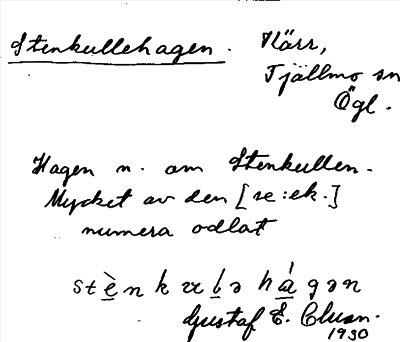 Stenkullehagen. Kärr,
Tjällmo sn
Ögl.
Hagen n. om Stenkullen.
Mycket av den [se: ek.]
numera odlat
Gustaf E.
1930